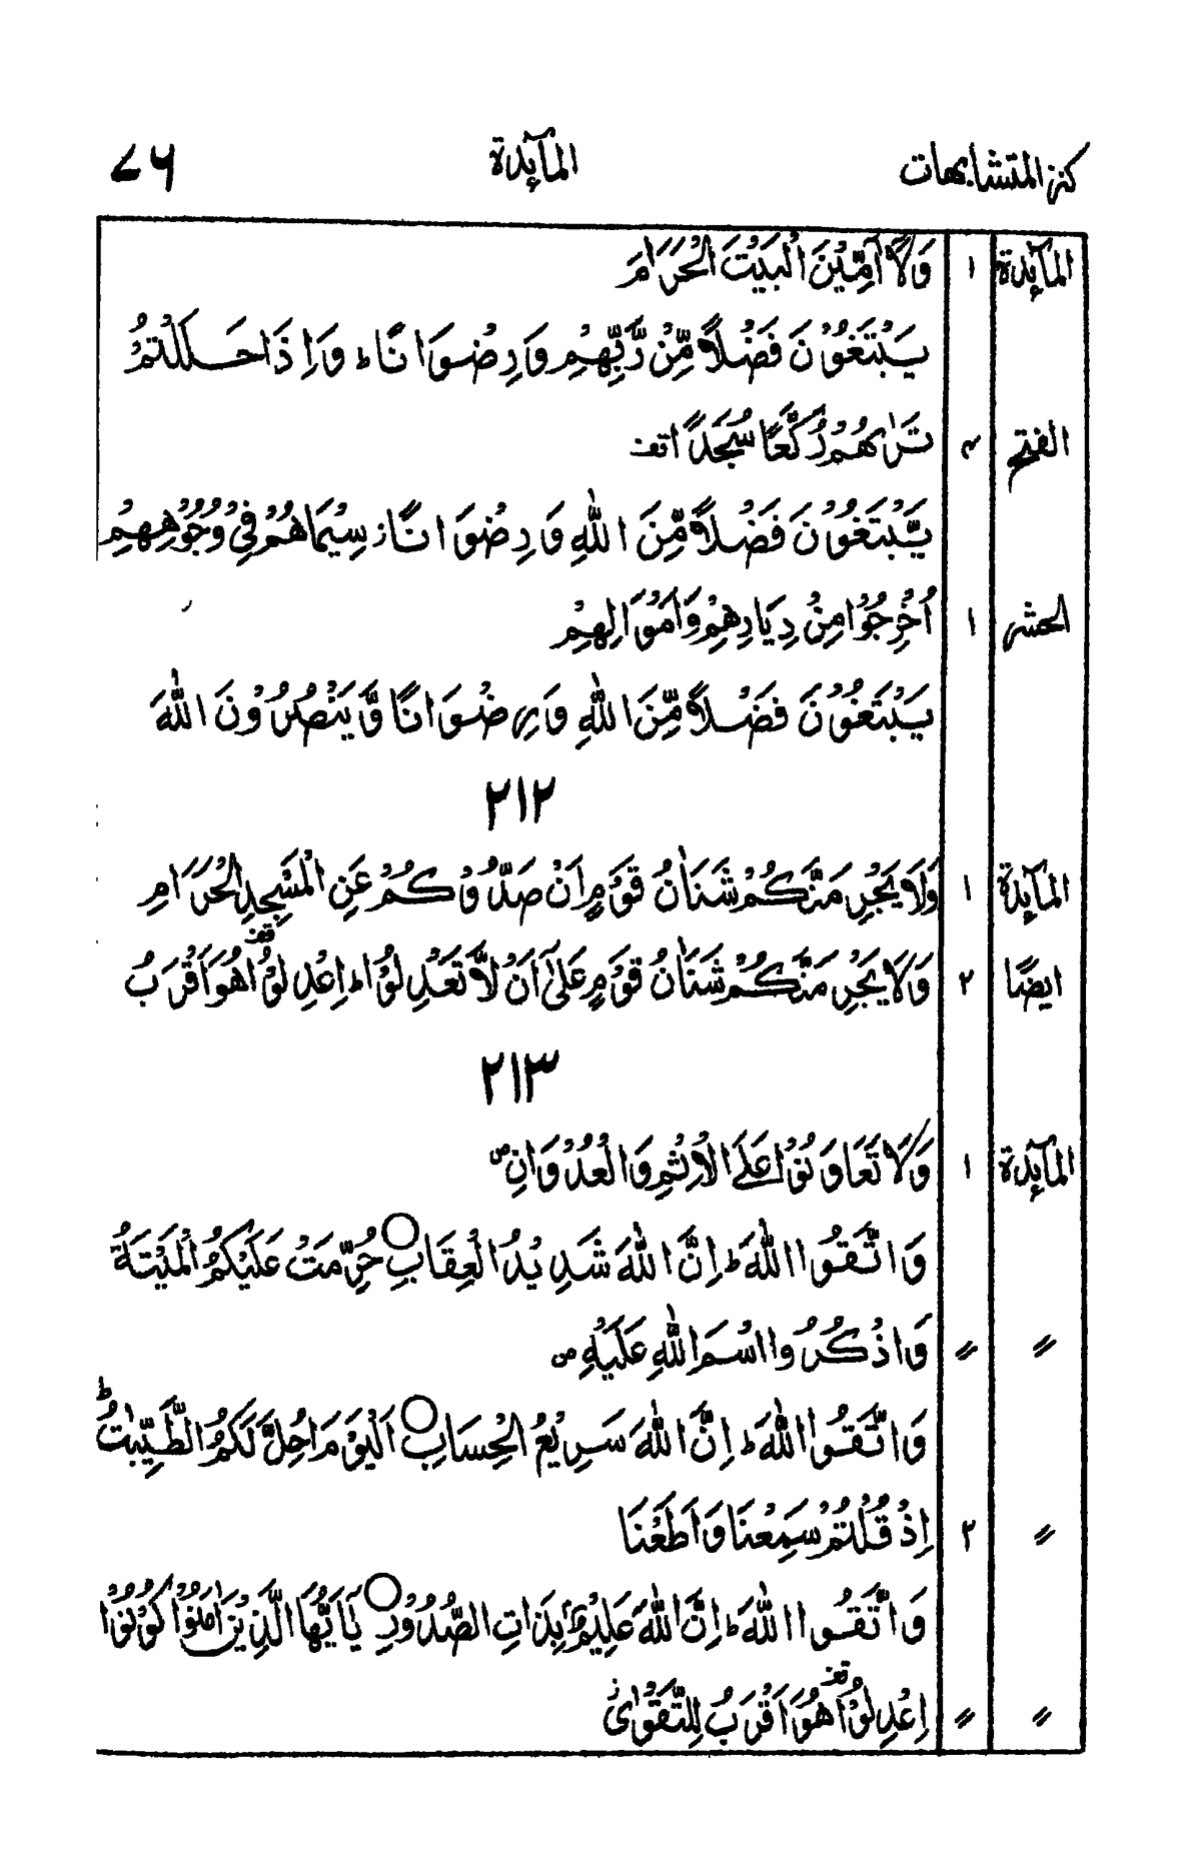 كنز المتشابهات المآئدة ٧٦
المآئدة ١ وَلَآ اٰمِّيْنَ الْبَيْتَ الْحَرَامَ
يَبْتَغُوْنَ فَضْلًا مِّنْ رَّبِّهِمْ وَرِضْوَانًا ط وَاِذَا حَلَلْتُمْ
الفتح ٤ تَرٰىهُمْ رُكَّعًا سُجَّدًا
يَّبْتَغُوْنَ فَضْلًا مِّنَ اللّٰهِ وَرِضْوَانًا ز سِيْمَاهُمْ فِيْ وُجُوْهِهِمْ
الحشر ١ اُخْرِجُوْا مِنْ دِيَارِهِمْ وَاَمْوَالِهِمْ
يَبْتَغُوْنَ فَضْلًا مِّنَ اللّٰهِ وَرِضْوَانًا وَّيَنْصُرُوْنَ اللّٰهَ
٢١٢
المآئدة ١ وَلَا يَجْرِمَنَّكُمْ شَنَاٰنُ قَوْمٍ اَنْ صَدُّوْكُمْ عَنِ الْمَسْجِدِ الْحَرَامِ
ايضًا ٢ وَلَا يَجْرِمَنَّكُمْ شَنَاٰنُ قَوْمٍ عَلٰٓى اَنْ لَّا تَعْدِلُوْا ط اِعْدِلُوْا قف هُوَ اَقْرَبُ
٢١٣
المآئدة ١ وَلَا تَعَاوَنُوْا عَلَى الْاِثْمِ وَالْعُدْوَانِ ص
وَاتَّقُوا اللّٰهَ ط اِنَّ اللّٰهَ شَدِيْدُ الْعِقَابِ ○ حُرِّمَتْ عَلَيْكُمُ الْمَيْتَةُ
〃 〃 وَاذْكُرُوا اسْمَ اللّٰهِ عَلَيْهِ ص
وَاتَّقُوا اللّٰهَ ط اِنَّ اللّٰهَ سَرِيْعُ الْحِسَابِ ○ اَلْيَوْمَ اُحِلَّ لَكُمُ الطَّيِّبٰتُ ط
〃 ٢ اِذْ قُلْتُمْ سَمِعْنَا وَاَطَعْنَا
وَاتَّقُوا اللّٰهَ ط اِنَّ اللّٰهَ عَلِيْمٌۢ بِذَاتِ الصُّدُوْرِ ○ يٰٓاَيُّهَا الَّذِيْنَ اٰمَنُوْا كُوْنُوْا
〃 〃 اِعْدِلُوْا قف هُوَ اَقْرَبُ لِلتَّقْوٰى ز